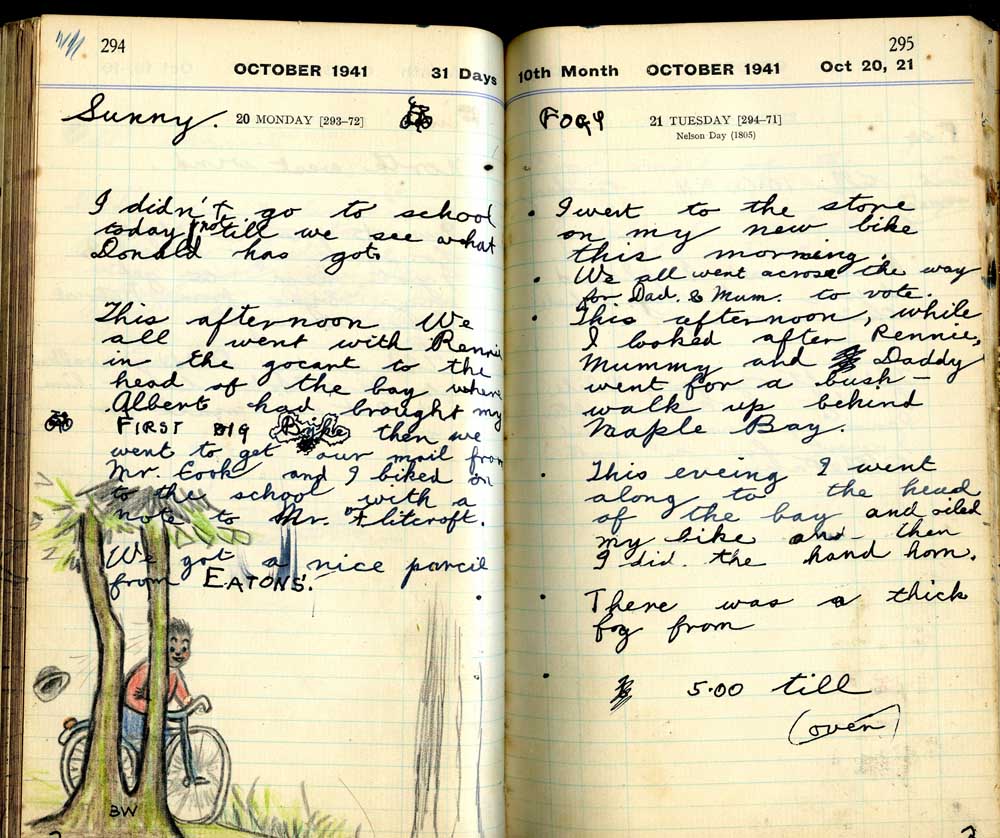 294
OCTOBER 1941 31 Days
Sunny. 20 MONDAY [293–72]
I didn't go to school
today not till we see what
Donald has got.
This afternoon We
all went with Rennie
in the gocant to the
head of the bay where
Albert had brought my
FIRST BIG Bike then we
went to get our mail from
Mr. Cook and I biked on
to the school with a
note to Mr. Flitcroft.
We got a nice parcil
from EATONS'.
BW
295
10th Month OCTOBER 1941 Oct 20, 21
FOGY 21 TUESDAY [294–71]
Nelson Day (1805)
• I went to the store
on my new bike
this morning.
• We all went across the way
for Dad. & Mum. to vote.
• This afternoon, while
I looked after Rennie,
Mummy and Daddy
went for a bush –
walk up behind
Maple Bay.
• This eveing I went
along to the head
of the bay and oiled
my bike and then
I did. the hand horn.
• There was a thick
fog from
• 5.00 till
(over)